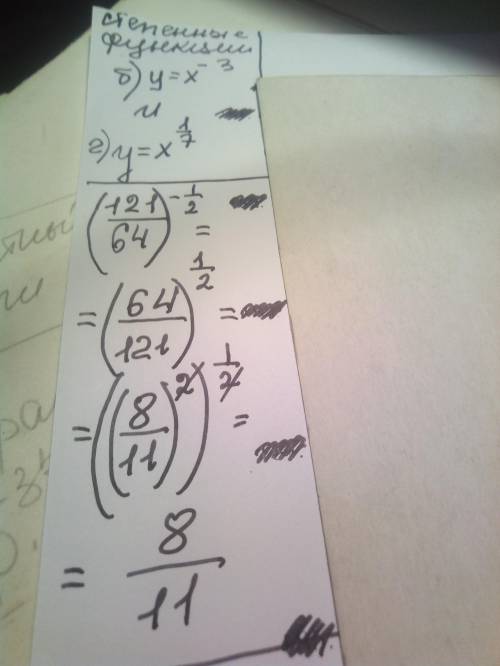 степенные
функции
б) y = x^{-3}
и
г) y = x^{\frac{1}{7}}
\left(\frac{121}{64}\right)^{-\frac{1}{2}} =
= \left(\frac{64}{121}\right)^{\frac{1}{2}} =
= \left(\left(\frac{8}{11}\right)^{2}\right)^{\times \frac{1}{2}} =
= \frac{8}{11}